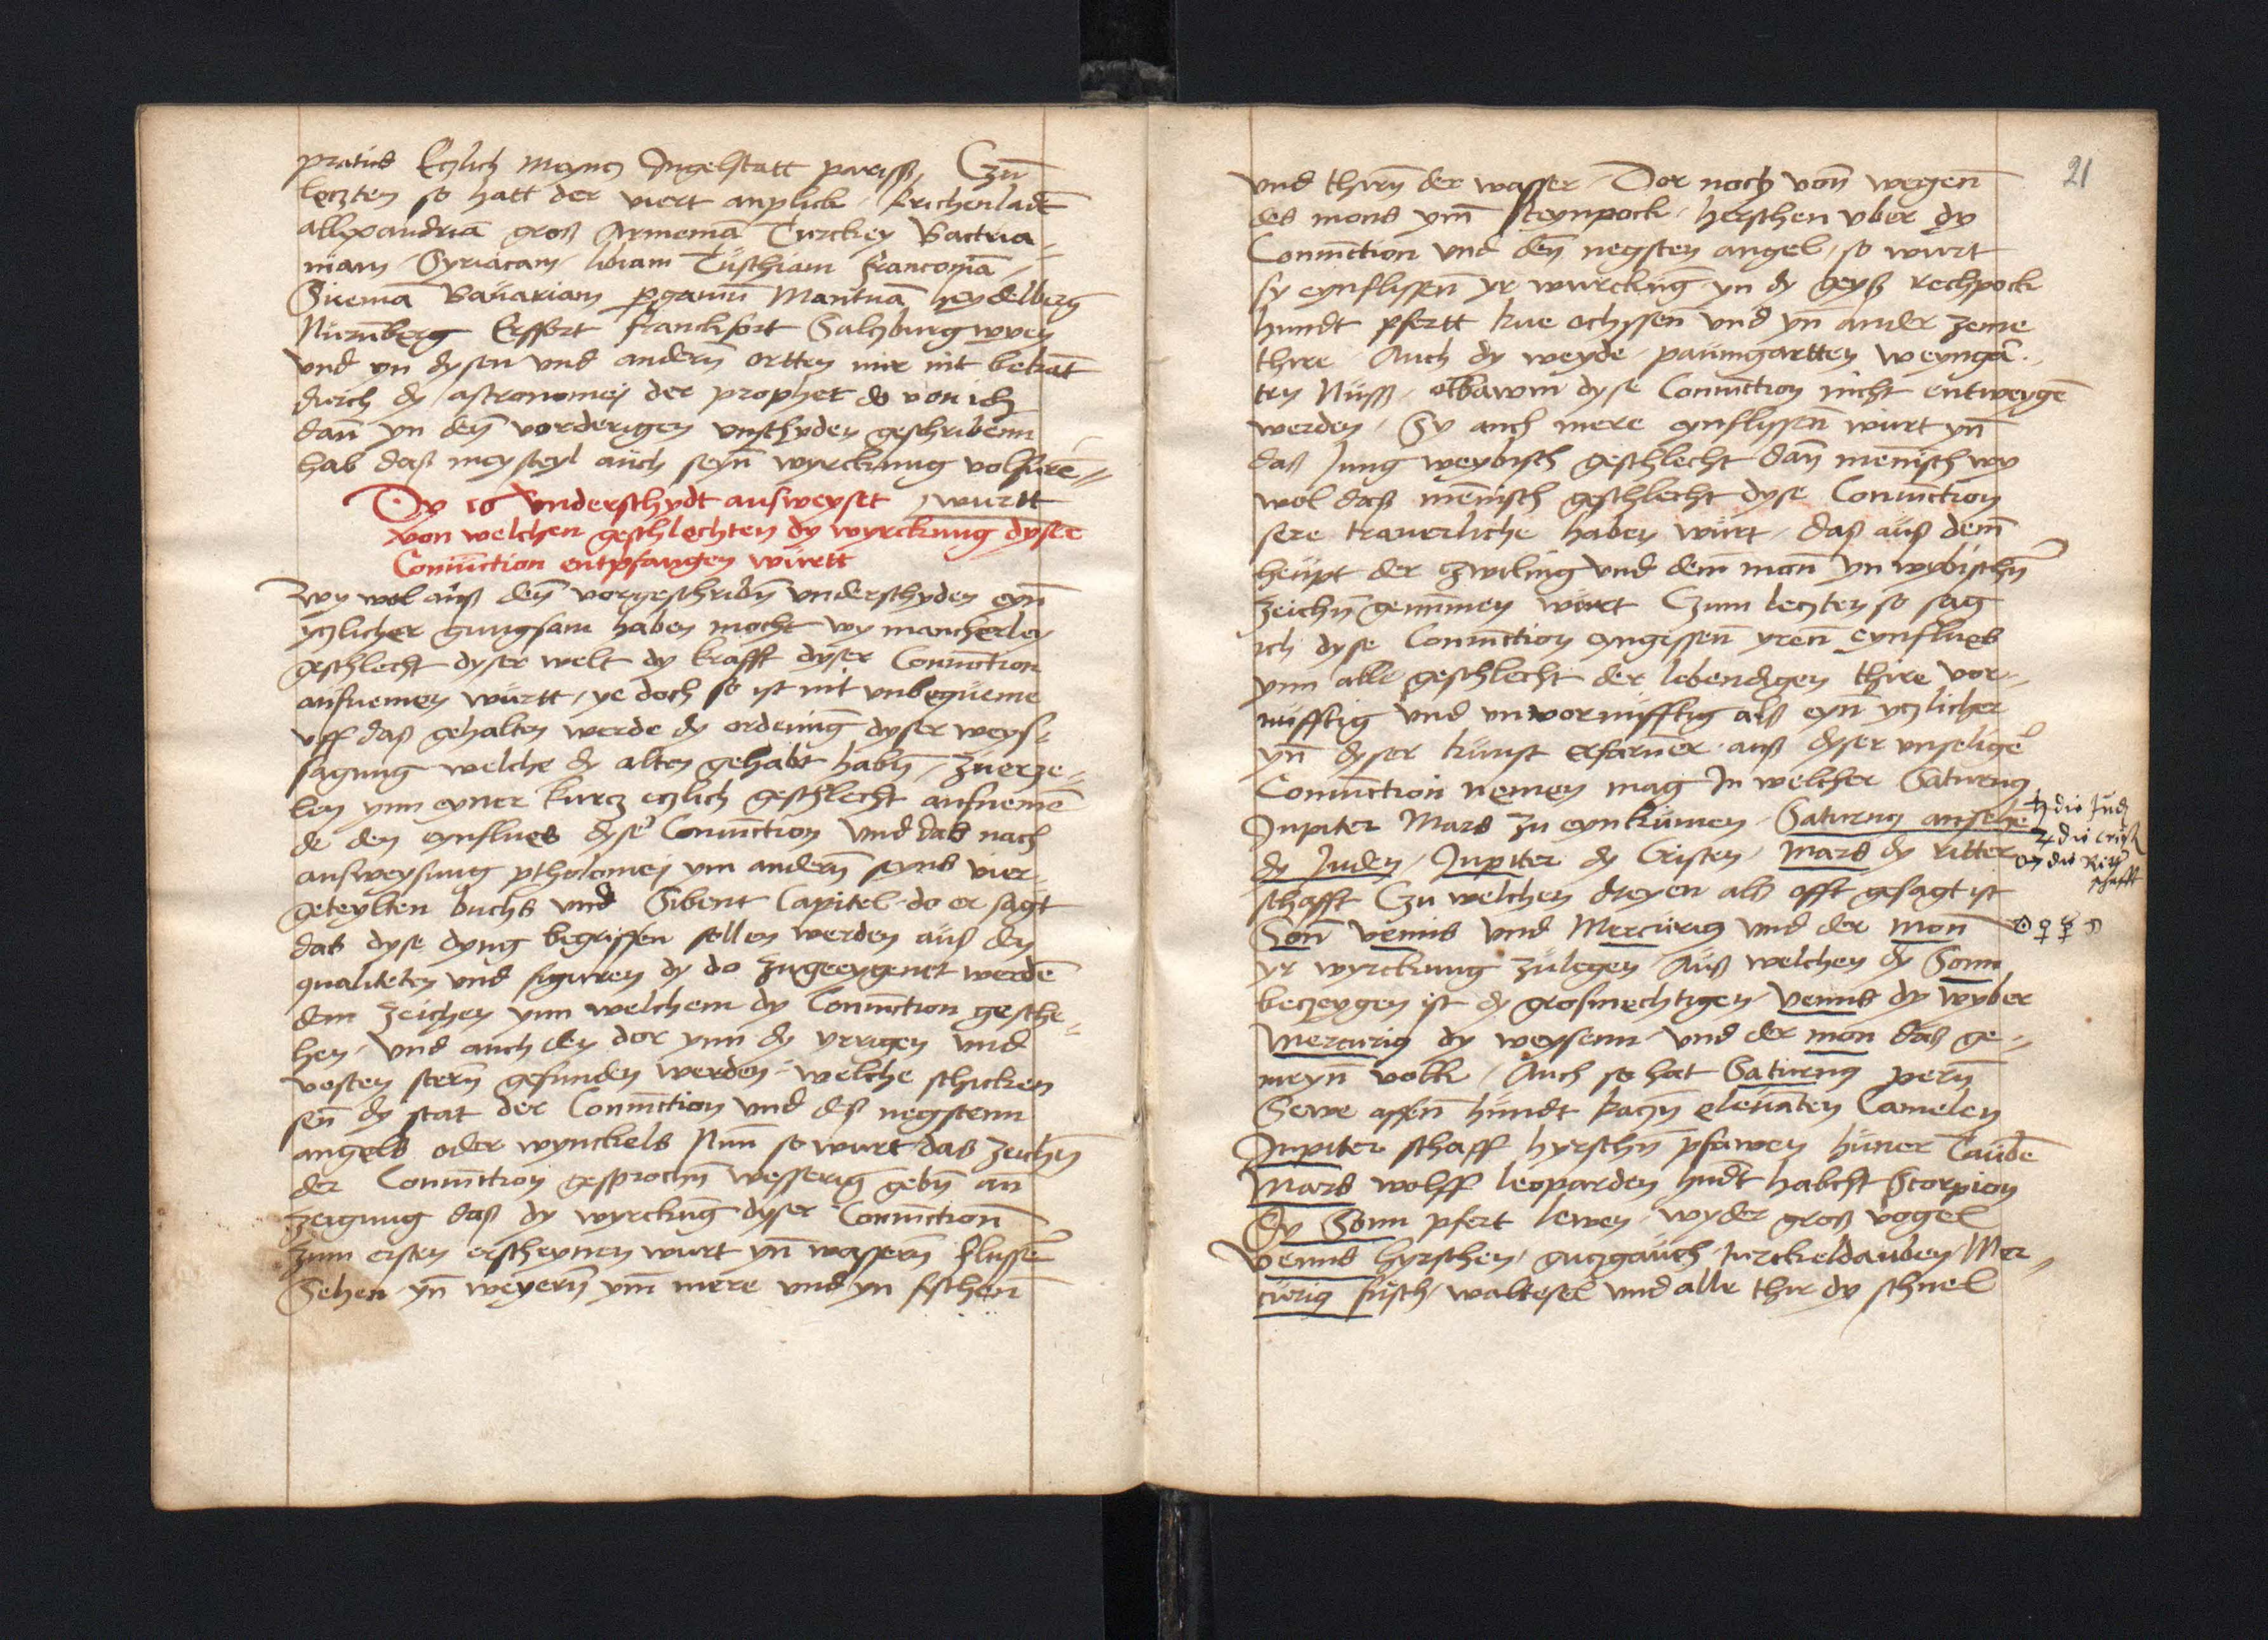 pratus Etzlich Meyncz Ingelstatt pariss, Czū
leczten so hatt der viert anplick krichenlādt
allexandriā groß Armeniā Turckey Bactria-
niam Syriacam libiam Tuschiam franconiā
Sueuiā Bauariam pgamū Mantuā heydelberg
Nurnberg Erffort franckfort Salczburg wyen
vnd yn dysen vnd andern ortten mir nit bekāt
durch dy astronomej der prophet do von ich
dan yn den vorderigen vnschyden geschribenn
hab daß meysteyl auch seyn wyrckung volfure
Dy 16 Vnderschydt ausweyset wurtt
von welchen geschlechten dy wyrckung dyser
Coniūction entpfangen wurtt
Wy wol auß den vorgeschribn vnderschyden eyn
yczlicher gungsam haben mocht wy mancherley
geschlecht dyser welt dy krafft dyser Coniūction
aufnemen wurtt, ye doch so ist nit vnbequeme
vff daß gehalten werde dy ordenūg dyser weys-
sagung welche dy alten gehabt habn, zuerze-
len ynn eyner kurcz eczlich geschlecht aufnemē
de den eynflues dyser Coniūction Vnd das nach
ausweysung ptholomej ym andern seyns vier
geteylten buchs vnd Sibent Capitel do er sagt
das dyse dyng begriffen sollen werden auß den
qualiteten vnd figuren dy do zugeeygent werdē
dem zeichen ynn welchem dy Coniūction gesche-
hen vnd auch den dor ynn dy yrrigen vnd
vesten stern gefunden werden welche schicken
sen dy stat der Coniūction vnd deß negstenn
angels oder wynckels Nun so wurt das zeichn
der Coniūction gesprochn wesserig gebn an
zeigung daß dy wyrckūg dyser Coniūction
zum ersten erscheynen wurt yn wassern flusser
Sehen yn weyern ym mere vnd yn fyschen
21
vnd thirn der wasser Dor noch von wegen
des mons ym steynpock herschen vber dy
Coniūction vnd den negsten angel, so wurt
sy eynflissen yr wurckūg yn dy geyß rechpock
hundt pfertt kue ochssen vnd yn ander zeme
thire Auch dy weyde paumgartten weyngā-
ten Nuss, olbawm dyse Coniūction nicht entweychē
werden, Sy auch mere eynflissen wurt yn
daß Jung weybisch geschlecht dan menisch wy
wol daß menisch geschlecht dyse Coniūction
sere trauerliche haben wurt, daß auß dem
heupt der zwiling vnd dem man yn wybischn
zeichn genummen wurt Czum leczten so sag
ich dyse Coniūction eyngissen yren eynflues
ynn alle geschlecht der lebendigen thire vor-
nufftig vnd vnvornufftig alß eyn yczlicher
yn dyser kunst erfarner auß dyser vnselige
Coniūction nemen mag In welcher Saturnus
Jupiter Mars zu eynkumen Saturnus ansehe
dy Juden, Jupiter dy Cristen, Mars dy ritter
schafft Czu welchen dreyen alß offt gesagt ist
Son venus vnd Mercurius vnd der Mon
yr wyrckung zulegen Auß welchen dy Sonn
beczeygen ist dy grosmechtigen venus dy wyber
Mercurius dy weysenn vnd der mon daß ge-
meyn volk, Auch so hat Saturnus pern
Sewe affen hundt kaczn elevanten Camelen
Jupiter schaff hyrschn pfawen huner Taubē
Mars wolff leoparden hundt habicht Scorpion
Dy Sonn pfert lewen wyder groß vogel
Venus hyrschen, guczgauch turckeldauben, Mer-
curius fuchs, waltesel vnd alle thir dy schnel
♄ die Jud
♃ die crist
♂ die Ritt
schafft
☉ ♀ ☿ ☽